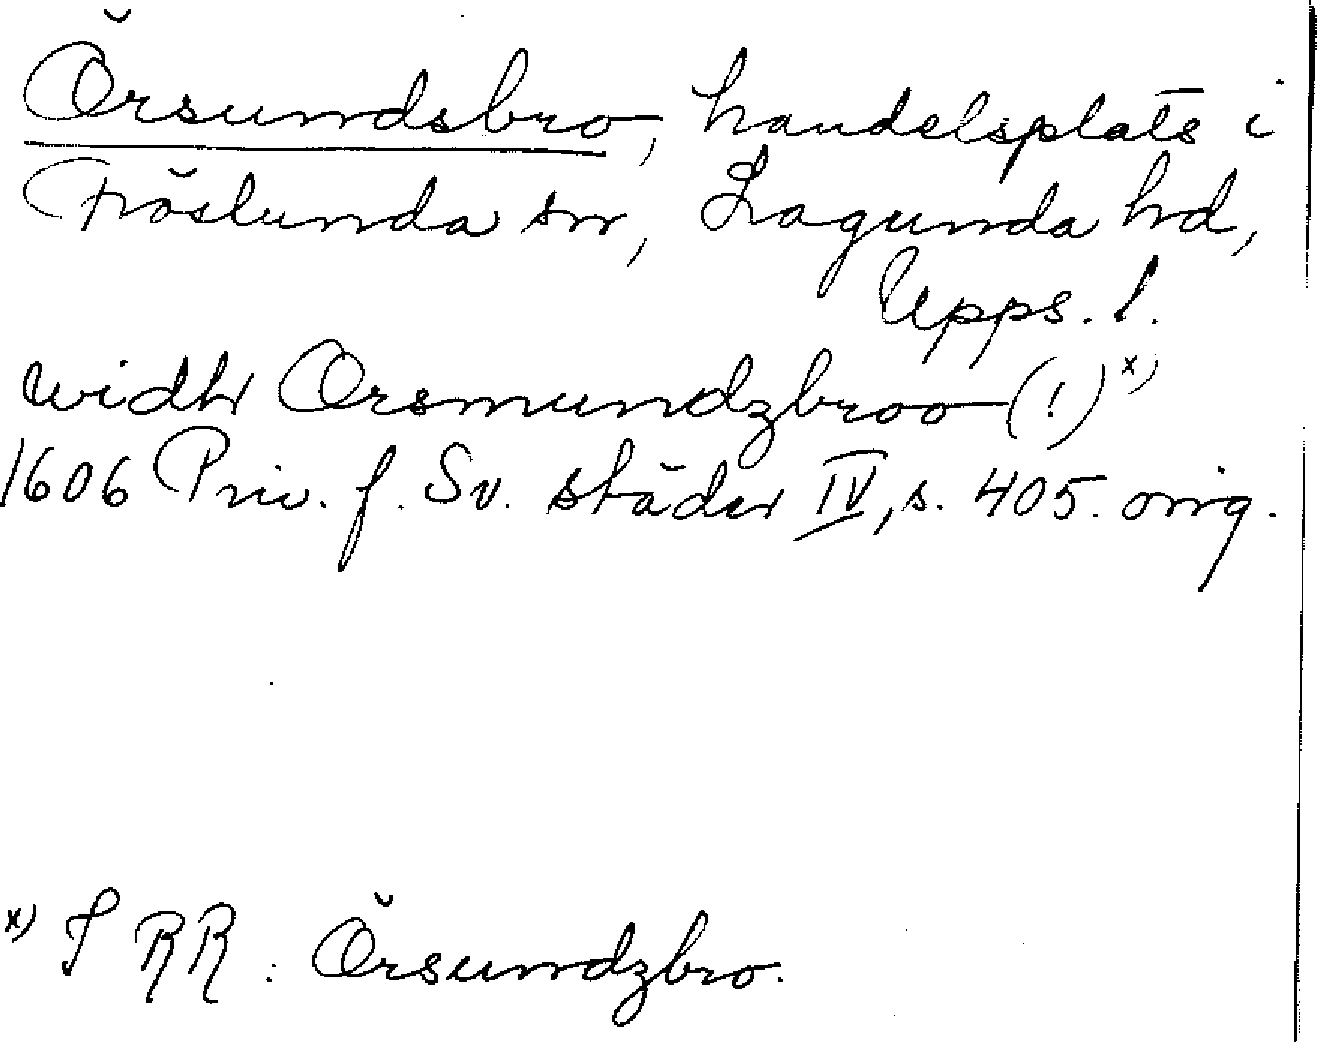 Örsundsbro, handelsplats i
Fröslunda sn, Lagunda hd,
Upps. l.
widh Orsmundzbroo (!) x)
1606 Priv. f. Sv. städer IV, s. 405. orig.
x) I RR: Örsundzbro.